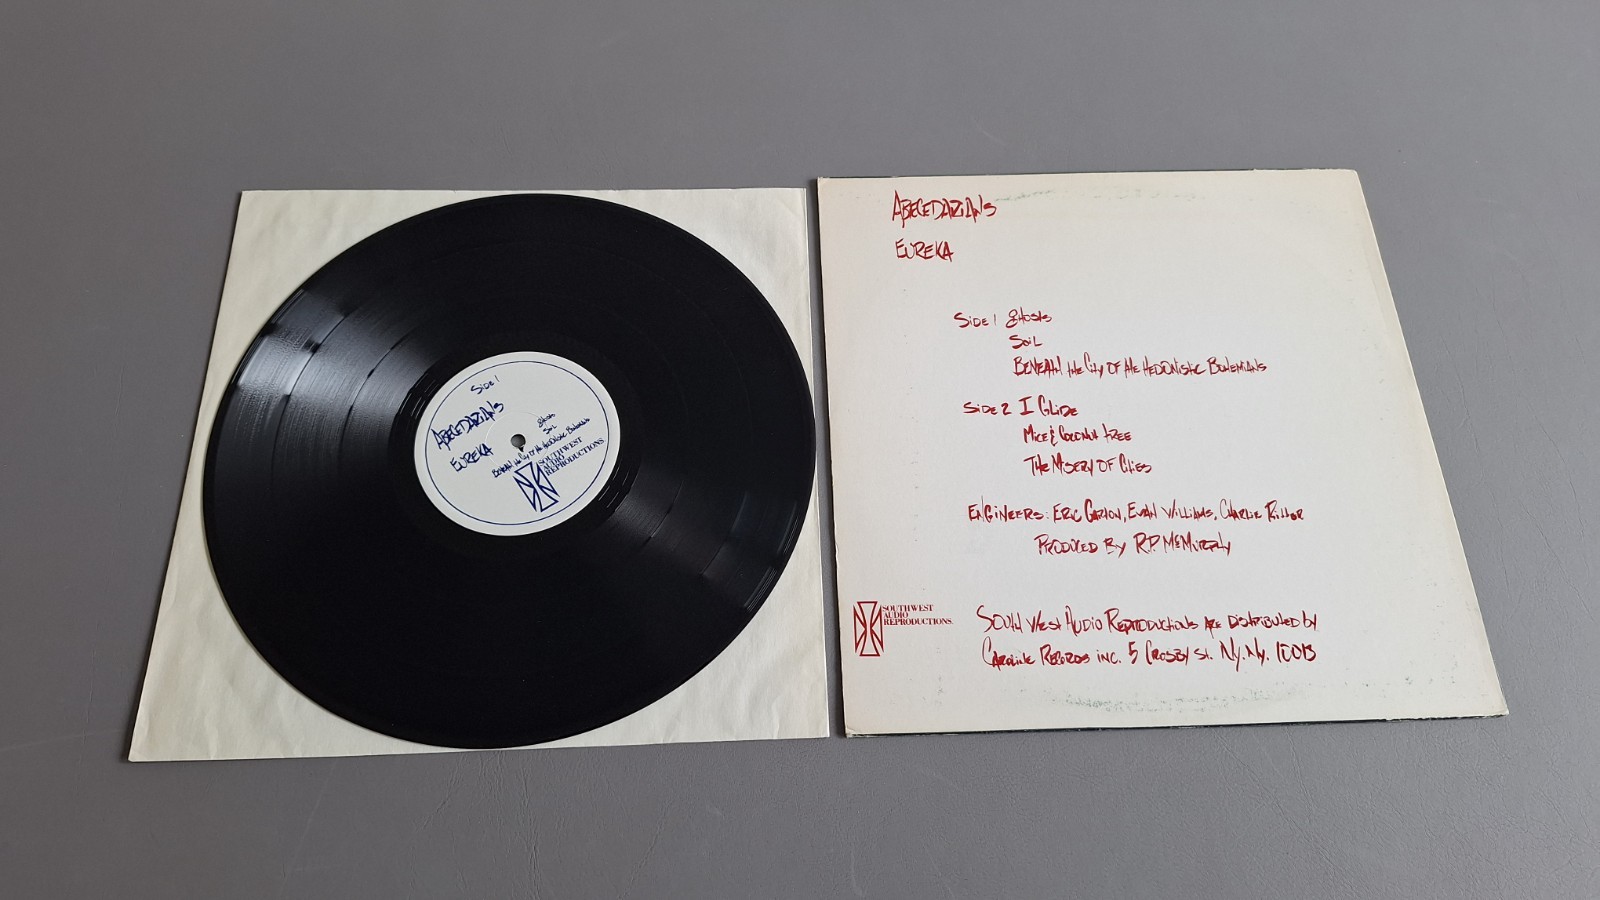 Side 1
Abecedarians
Eureka
Ghosts
Soil
Beneath the City of the Hedonistic Bohemians
SOUTHWEST
AUDIO
REPRODUCTIONS
Abecedarians
Eureka
Side 1 Ghosts
Soil
Beneath the City of the Hedonistic Bohemians
Side 2 I Glide
Mice & Coconut Tree
The Misery of Cities
Engineers: Eric Garion, Evan Williams, Charlie Ritter
Produced by R.P. McMurphy
SOUTHWEST
AUDIO
REPRODUCTIONS.
South West Audio Reproductions are distributed by
Caroline Records inc. 5 Crosby St. N.Y. N.Y. 10013